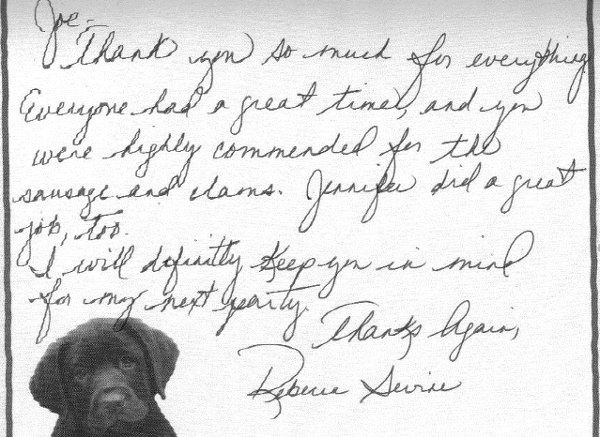 Joe-
Thank you so much for everything.
Everyone had a great time, and you
were highly commended for the
sausage and clams. Jennifer did a great
job, too.
I will definitly keep you in mind
for my next party.
Thanks Again,
Rebecca